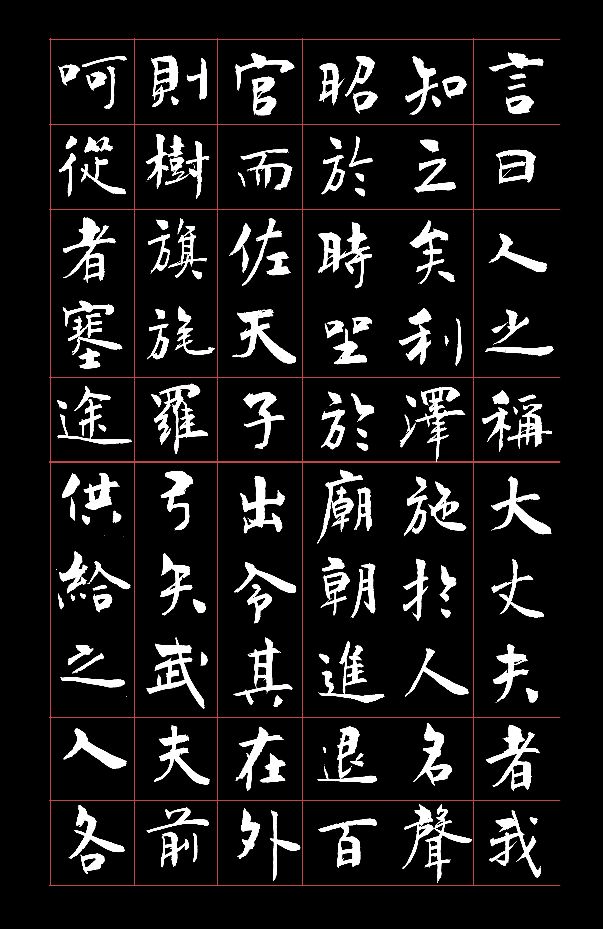 言曰人之稱大丈夫者我
知之矣利澤施於人名聲
昭於時坐於廟朝進退百
官而佐天子出令其在外
則樹旗旄羅弓矢武夫前
呵從者塞途供給之人各